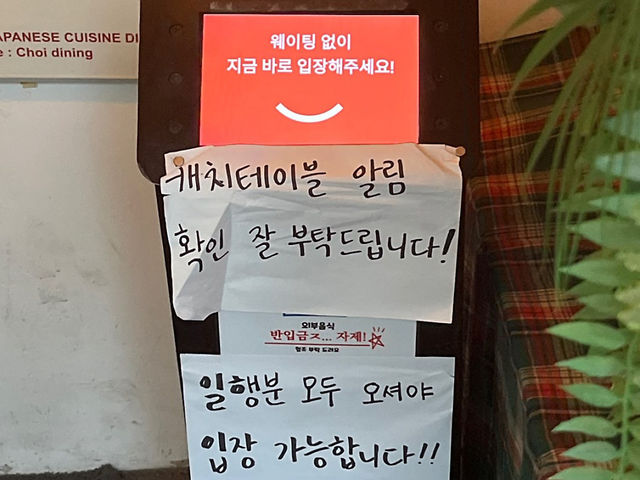 APANESE CUISINE DI
e : Choi dining
웨이팅 없이
지금 바로 입장해주세요!
캐치테이블 알림
확인 잘 부탁드립니다!
외부음식
반입금ㅈ... 자제!
협조 부탁 드려요
일행분 모두 오셔야
입장 가능합니다!!